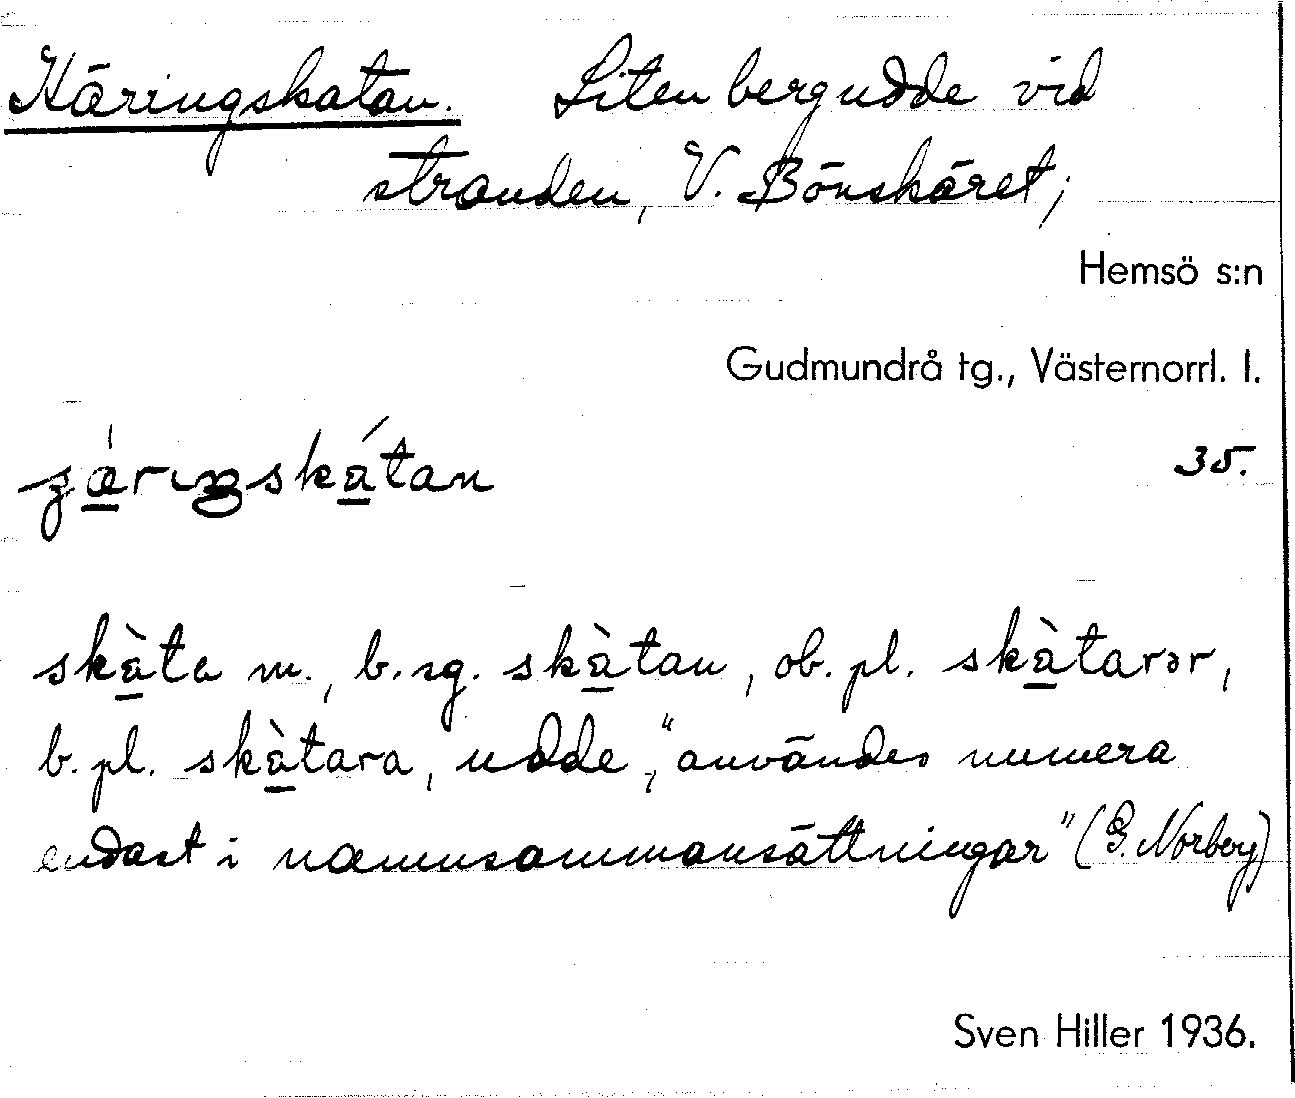 Käringskatan. Liten bergudde vid
stranden, V. Bönskäret;
Hemsö s:n
Gudmundrå tg., Västernorrl. l.
35.
skàta m., b.sg. skàtan, ob.pl. skàtarər,
b.pl. skàtara, udde, "användes numera
endast i namnsammansättningar" (G. Norberg)
Sven Hiller 1936.